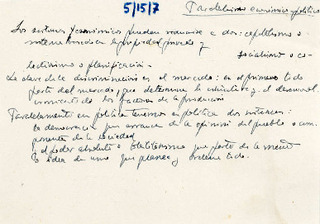 5/15/7
Paralelismo económico-político
Los sistemas económicos pueden reducirse a dos: capitalismo o
sistema fundado en la propiedad privada y
socialismo o co-
lectivismo o planificación.
La clave de la discriminación es el mercado: en el primero todo
parte del mercado, que determina la y el desarrol
de los factores de la producción
Paralelamente en política tenemos en política dos sistemas:
la democracia que arranca de la opinión del pueblo o com-
ponentes de la sociedad
el poder absoluto o totalitarismo que parte de la mente
o idea de uno que planea y ordena todo.